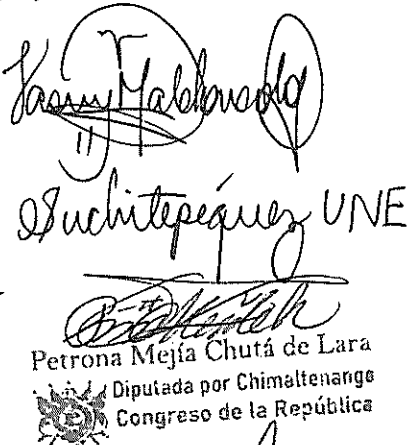 Maldonado
Suchitepéquez UNE
Petrona Mejía Chutá de Lara
Diputada por Chimaltenango
Congreso de la República